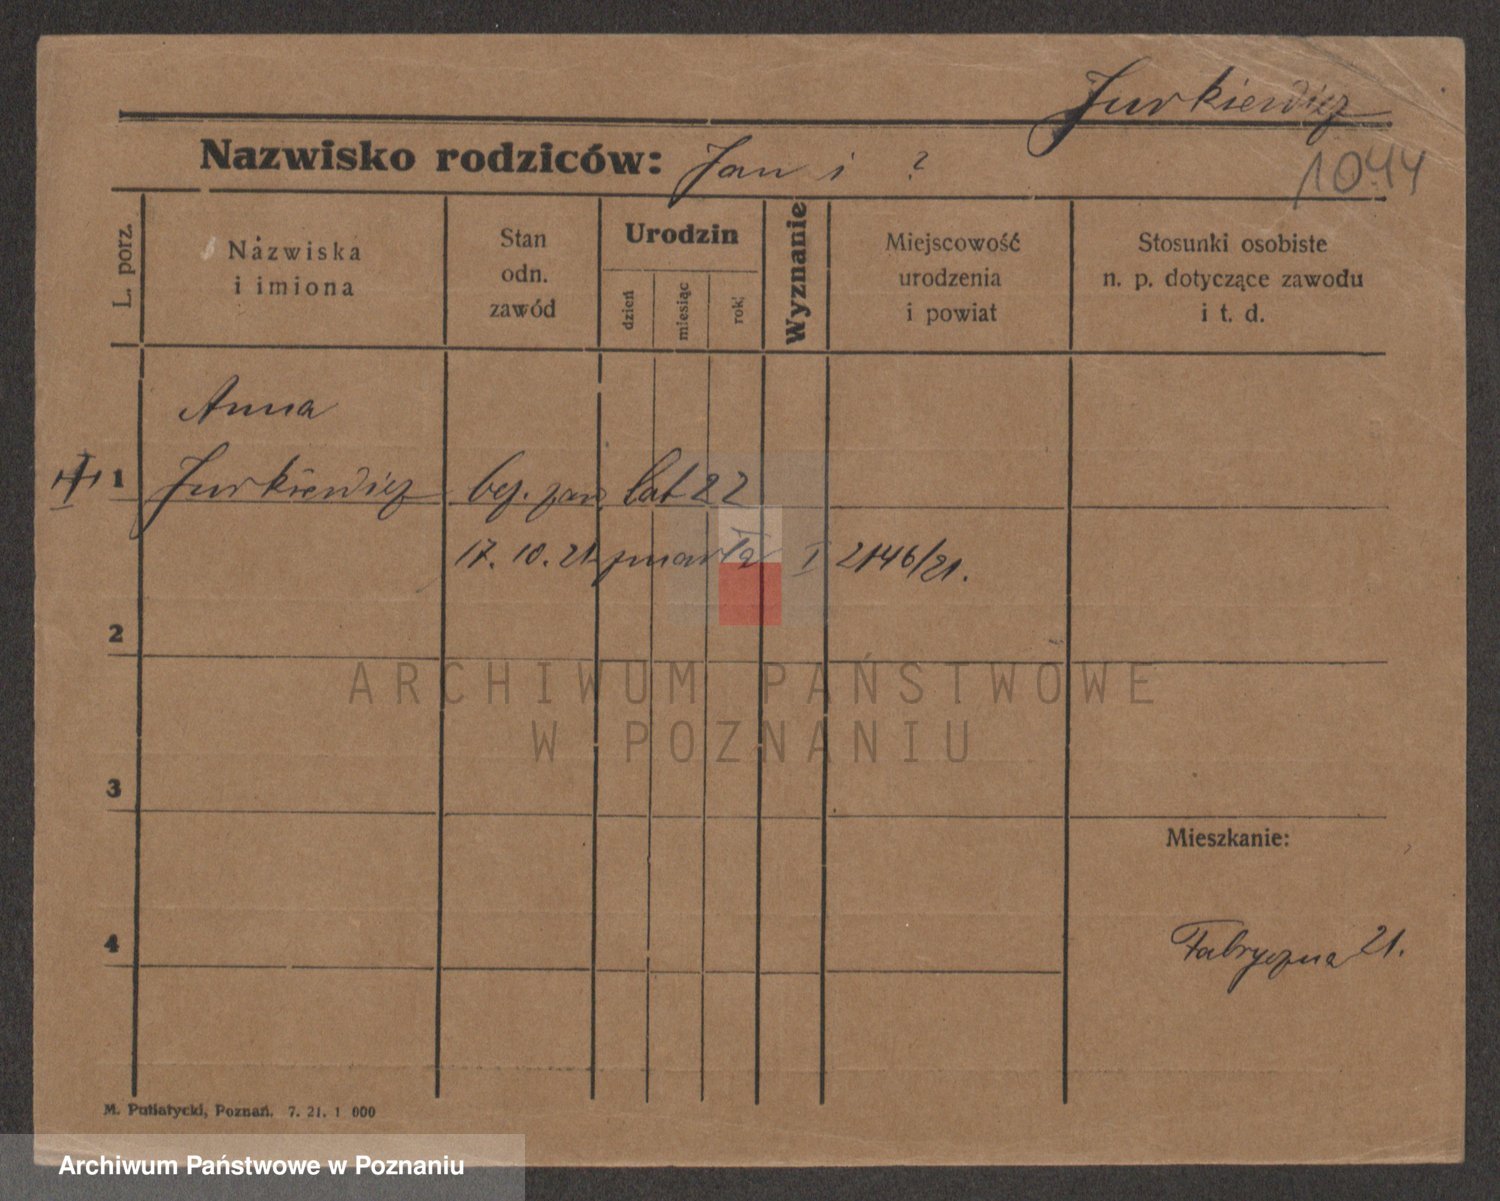 Jurkiewicz
Nazwisko rodziców: Jan i ?
1044
L. porz.
Nazwiska
i imiona
Stan
odn.
zawód
Urodzin
dzień
miesiąc
rok
Wyznanie
Miejscowość
urodzenia
i powiat
Stosunki osobiste
n. p. dotyczące zawodu
i t. d.
Anna
1 Jurkiewicz bez. zaw. lat 22
17. 10. 21. zmarła I 2146/21.
2
ARCHIWUM PAŃSTWOWE
W POZNANIU
3
Mieszkanie:
4
Fabryczna 21.
M. Putiatycki, Poznań. 7. 21. 1 000
Archiwum Państwowe w Poznaniu